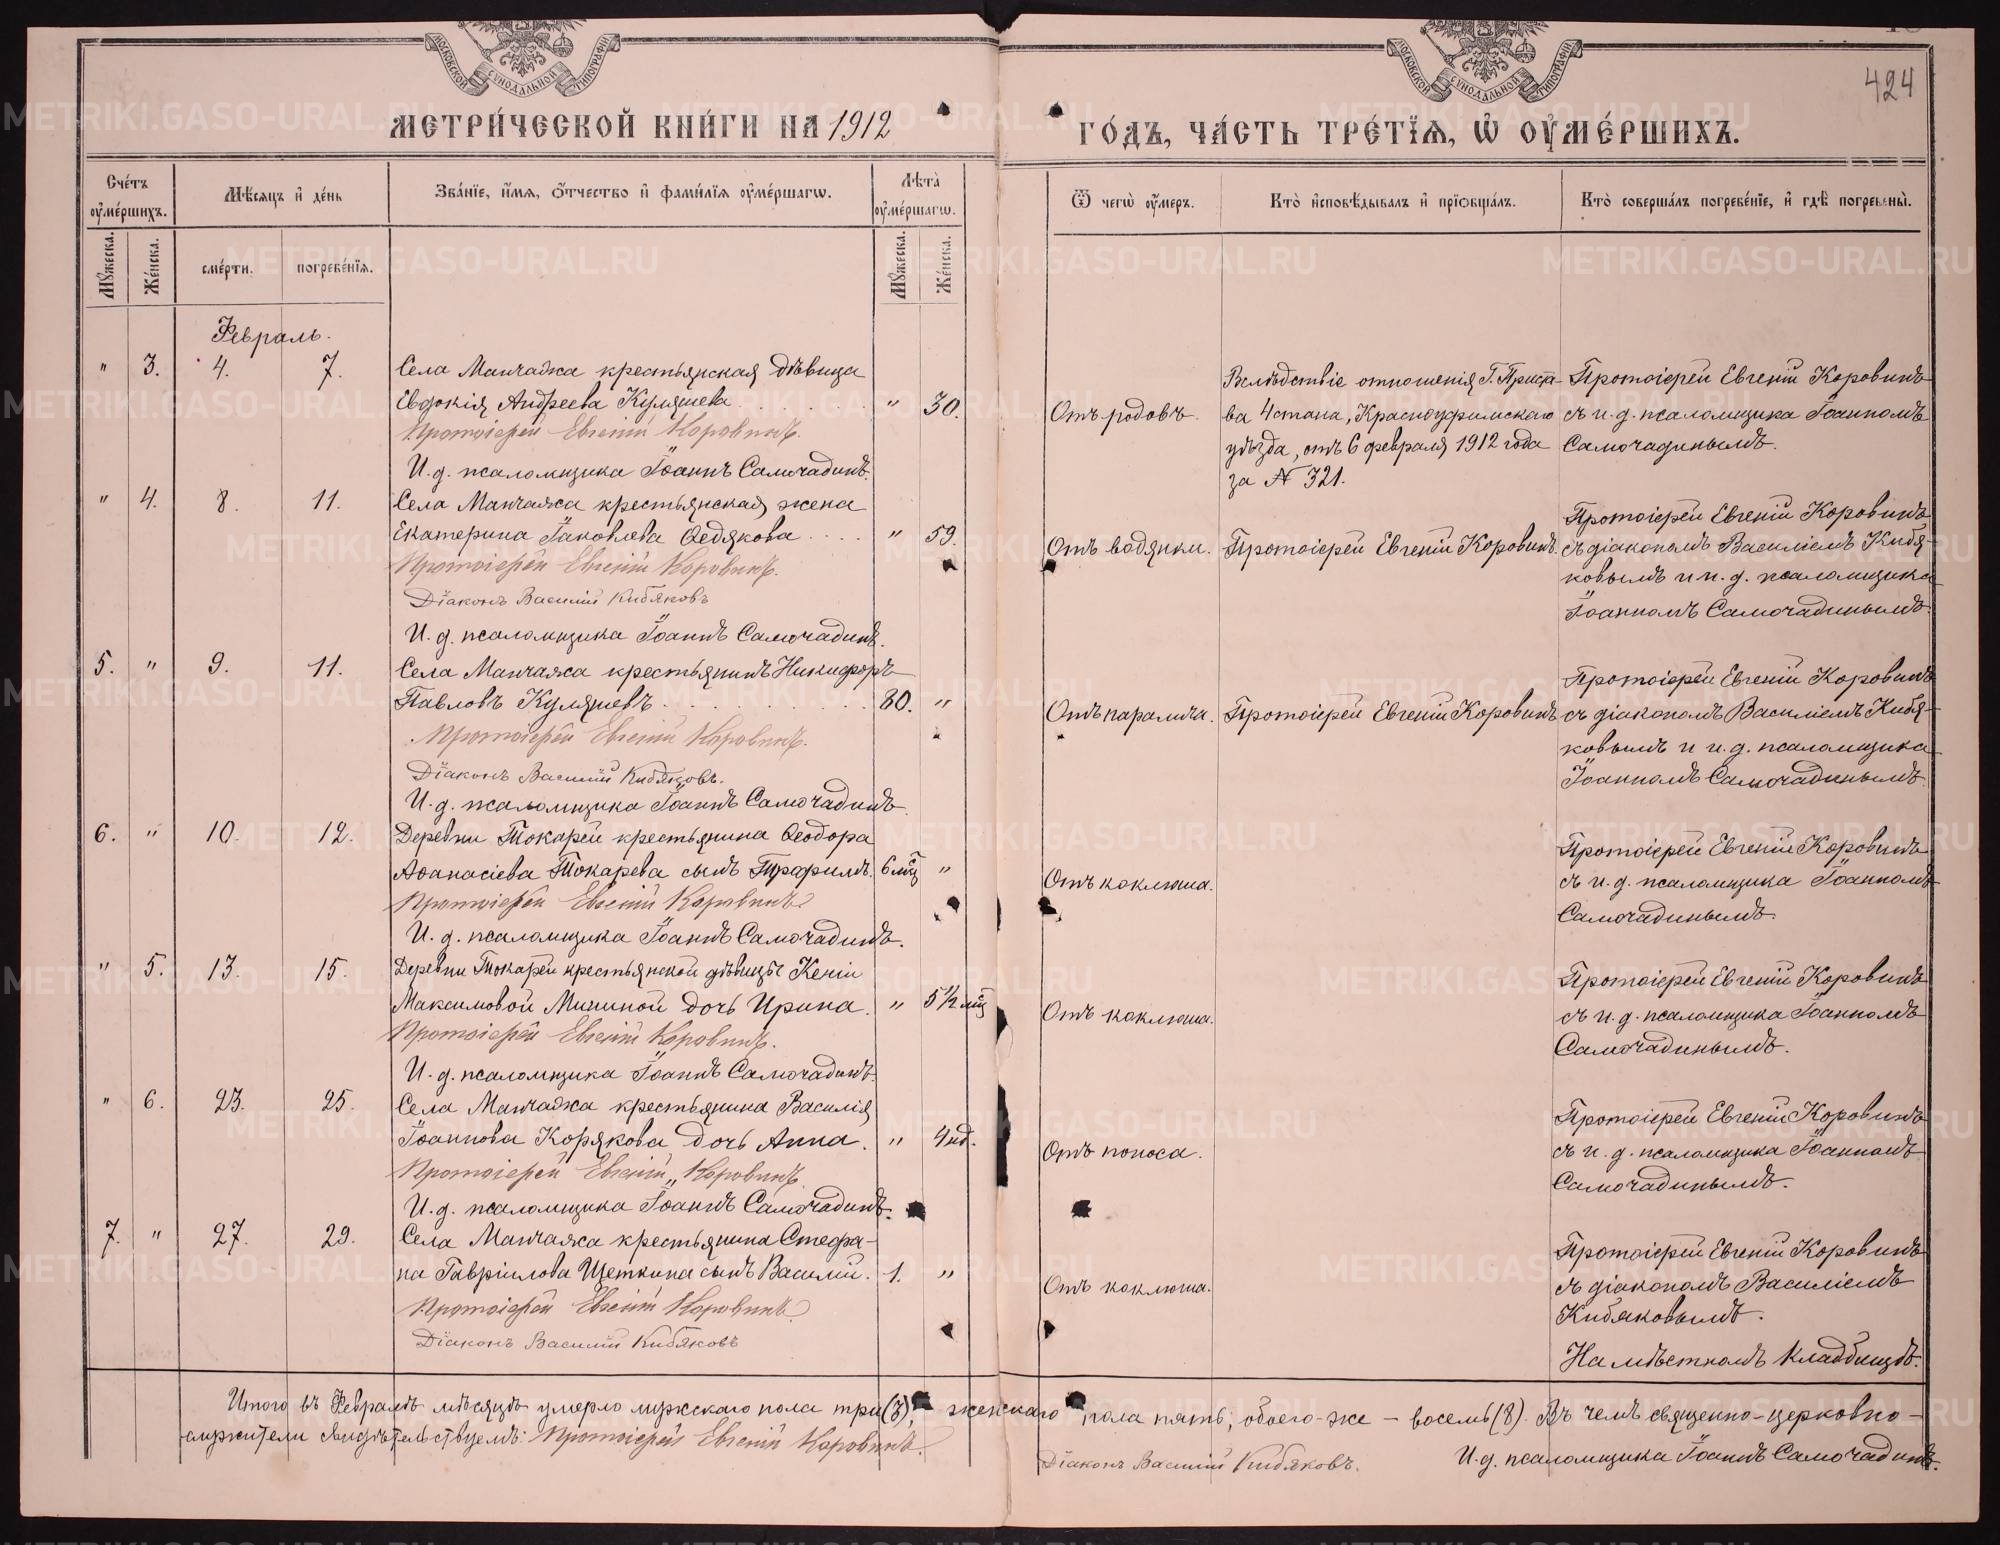 МОСКОВСКОЙ СѴНОДАЛЬНОЙ ТИПОГРАФІИ
МОСКОВСКОЙ СѴНОДАЛЬНОЙ ТИПОГРАФІИ
424
МЕТРИ́ЧЕСКОЙ КНИ́ГИ НА 1912
ГО́ДЪ, ЧА́СТЬ ТРЕ́ТІЯ, Ѡ҆ ОУ҆МЕ́РШИХЪ.
Сче́тъ оу҆ме́ршихъ.
Мѣ́сяцъ и҆ де́нь
Зва́нїе, и҆́мѧ, ѻ҆́тчество и҆ фами́лїѧ оу҆ме́ршагѡ.
Лѣ́та оу҆ме́ршагѡ.
Ѿ чегѡ̀ оу҆́меръ.
Кто̀ и҆сповѣ́дывалъ и҆ прїѻбща́лъ.
Кто̀ соверша́лъ погребе́нїе, и҆ гдѣ̀ погребены̀.
Мꙋ́жеска.
Же́нска.
сме́рти.
погребе́нїѧ.
Мꙋ́жеска.
Же́нска.
Февраль.
" 3. 4. 7. Села Манчажа крестьянская дѣвица
Евдокія Андреева Куляшева " 30.
Протоіерей Евгеній Коровинъ.
И. д. псаломщика Іоаннъ Самочадинъ.
Отъ родовъ.
Вслѣдствіе отношенія Г. Приста-
ва 4 стана, Красноуфимскаго
уѣзда, отъ 6 февраля 1912 года
за № 321.
Протоіерей Евгеній Коровинъ
съ и. д. псаломщика Іоанномъ
Самочадинымъ.
" 4. 8. 11. Села Манчажа крестьянская жена
Екатерина Іаковлева Ѳедякова " 59.
Протоіерей Евгеній Коровинъ.
Діаконъ Василій Кибяковъ
И. д. псаломщика Іоаннъ Самочадинъ.
Отъ водянки.
Протоіерей Евгеній Коровинъ.
Протоіерей Евгеній Коровинъ
съ діакономъ Василіемъ Кибя-
ковымъ и и. д. псаломщика
Іоанномъ Самочадинымъ.
5. " 9. 11. Села Манчажа крестьянинъ Никифоръ
Павловъ Куляшевъ 80. "
Протоіерей Евгеній Коровинъ.
Діаконъ Василій Кибяковъ.
И. д. псаломщика Іоаннъ Самочадинъ
Отъ паралича.
Протоіерей Евгеній Коровинъ
Протоіерей Евгеній Коровинъ
съ діакономъ Василіемъ Кибя-
ковымъ и и. д. псаломщика
Іоанномъ Самочадинымъ
6. " 10. 12. Деревни Токарей крестьянина Ѳеодора
Аѳанасіева Токарева сынъ Трафимъ. 6 мц "
Протоіерей Евгеній Коровинъ
И. д. псаломщика Іоаннъ Самочадинъ.
Отъ коклюша.
Протоіерей Евгеній Коровинъ
съ и. д. псаломщика Іоанномъ
Самочадинымъ.
" 5. 13. 15. Деревни Токарей крестьянской дѣвицы Ксеніи
Максимовой Мининой дочь Ирина. " 5 1/2 мц
Протоіерей Евгеній Коровинъ.
И. д. псаломщика Іоаннъ Самочадинъ.
Отъ коклюша.
Протоіерей Евгеній Коровинъ
съ и. д. псаломщика Іоанномъ
Самочадинымъ.
" 6. 23. 25. Села Манчажа крестьянина Василія
Іоаннова Корякова дочь Анна. " 4 нд.
Протоіерей Евгеній Коровинъ
И. д. псаломщика Іоаннъ Самочадинъ.
Отъ поноса.
Протоіерей Евгеній Коровинъ
съ и. д. псаломщика Іоанномъ
Самочадинымъ.
7. " 27. 29. Села Манчажа крестьянина Стефа-
на Гавріилова Щеткина сынъ Василій. 1. "
Протоіерей Евгеній Коровинъ
Діаконъ Василій Кибяковъ
Отъ коклюша.
Протоіерей Евгеній Коровинъ
съ діакономъ Василіемъ
Кибяковымъ.
На мѣстномъ кладбищѣ.
Итого въ Февралѣ мѣсяцѣ умерло мужскаго пола три (3), женскаго пола пять, обоего-же – восемь (8). Въ чемъ священно-церковно-
служители свидѣтельствуемъ: Протоіерей Евгеній Коровинъ.
Діаконъ Василій Кибяковъ.
И. д. псаломщика Іоаннъ Самочадинъ.
METRIKI.GASO-URAL.RU